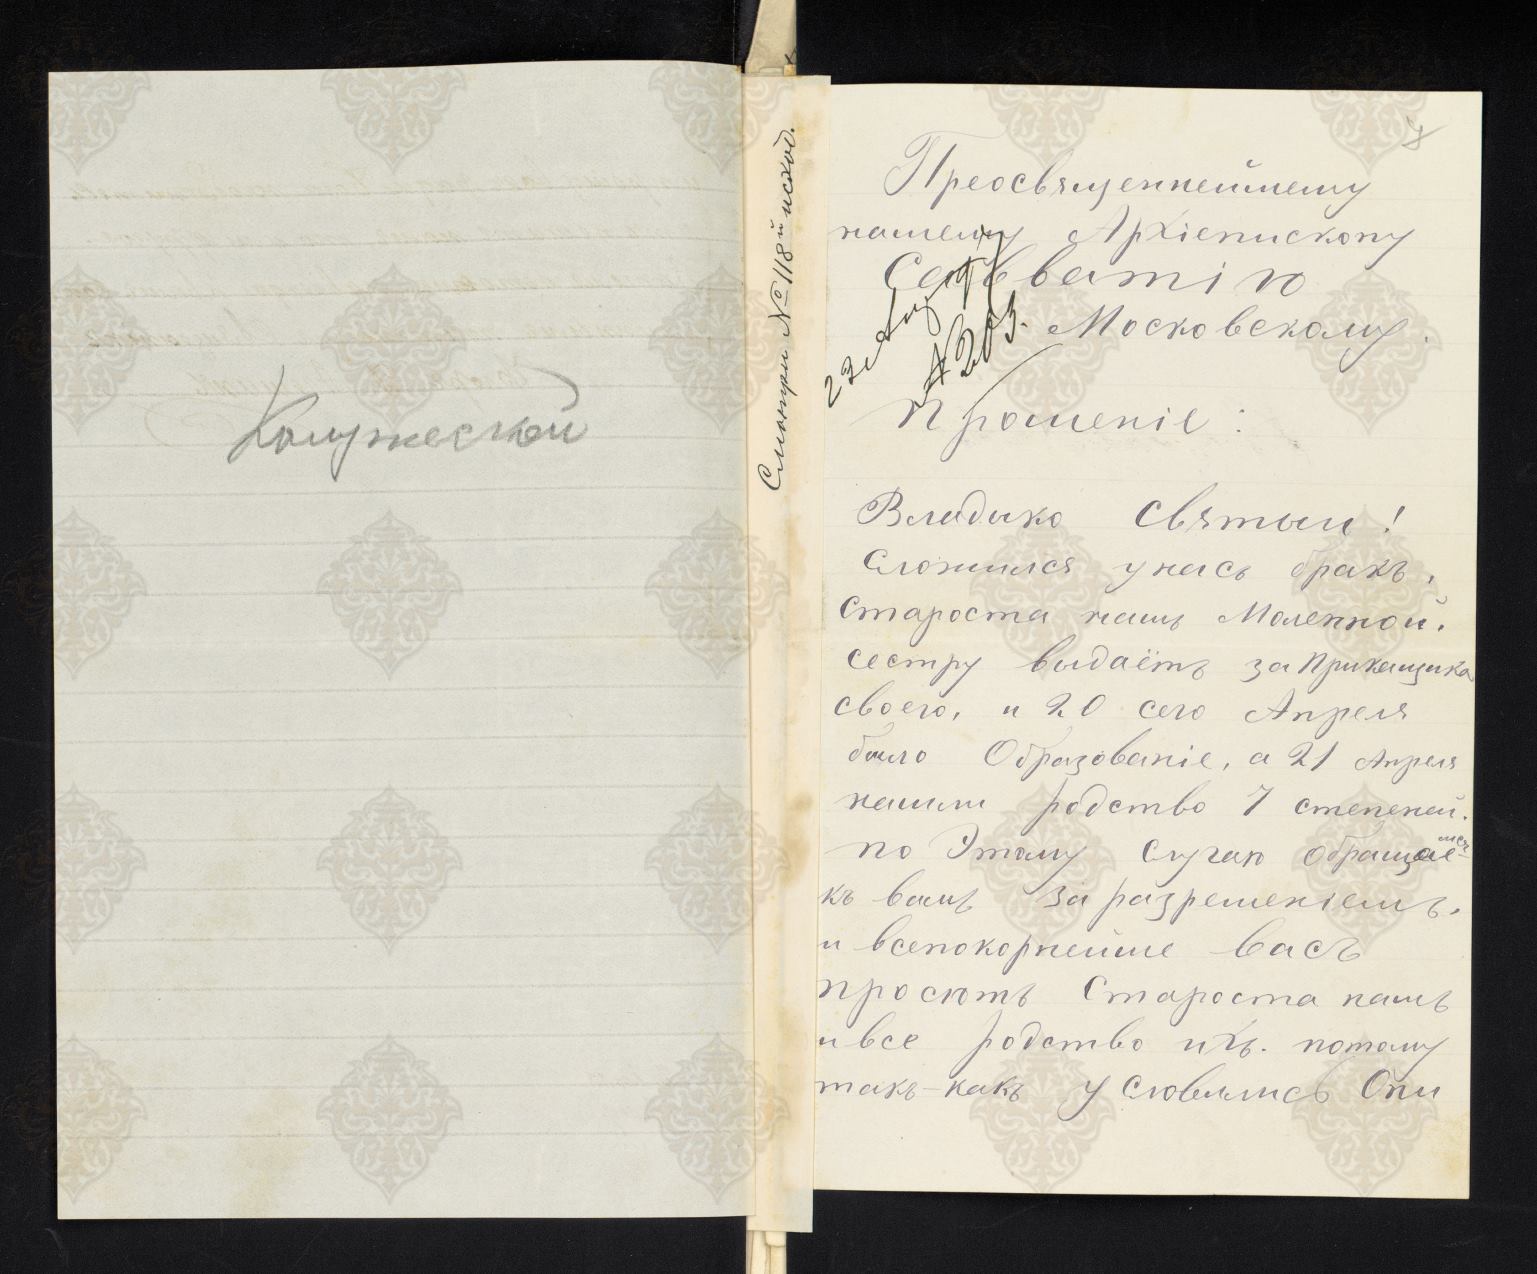 Калужеской
Смотри № 118й исход.
Преосвященнейшему
нашему Архіепископу
Савватію
Московскому.
№ 203.
Прошеніе:
Владыко святыи!
Сложился унась бракъ,
Староста нашъ Моленной.
сестру выдаётъ за Прикащика
своего, и 20 сего Апреля
было Образованіе, а 21 Апреля
нашли родство 7 степеней.
по Этому Случаю обращаемся
къ вамъ за разрешеніемъ,
и всепокорнейше васъ
просютъ Староста нашъ
и все родство ихъ. потому
такъ-какъ условились Они